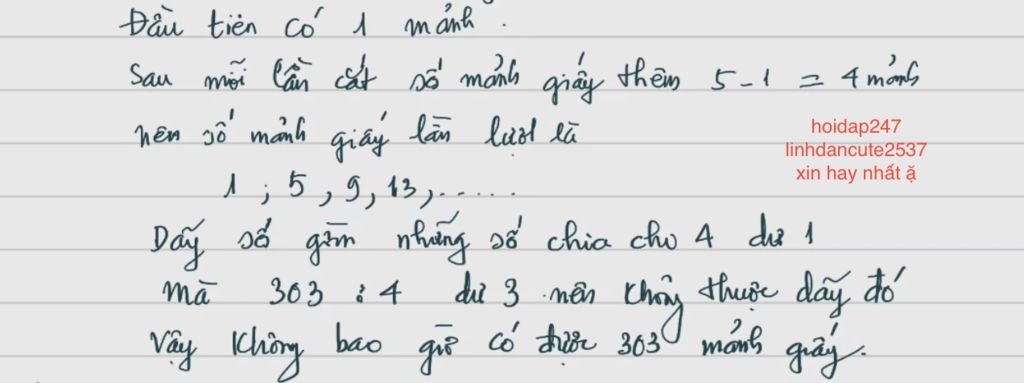 Đầu tiên có 1 mảnh.
Sau mỗi lần cắt số mảnh giấy thêm 5 - 1 = 4 mảnh
nên số mảnh giấy lần lượt là
1 ; 5 , 9 , 13 , ......
Dãy số gồm những số chia cho 4 dư 1
mà 303 : 4 dư 3 nên không thuộc dãy đó
Vậy không bao giờ có được 303 mảnh giấy.
hoidap247
linhdancute2537
xin hay nhất ặ